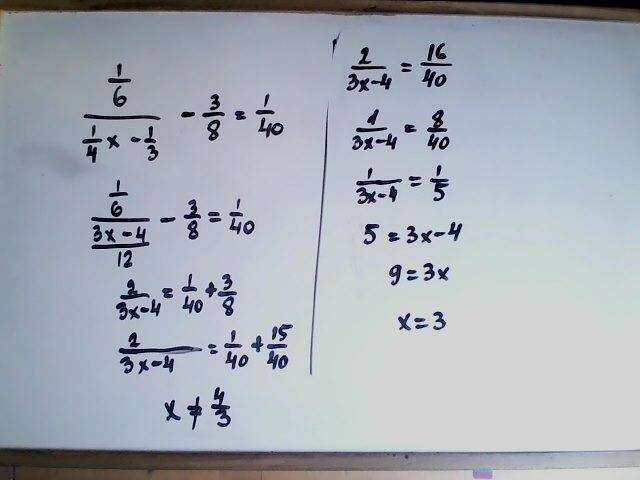 (1/6)/(1/4 x - 1/3) - 3/8 = 1/40
(1/6)/((3x-4)/12) - 3/8 = 1/40
2/(3x-4) = 1/40 + 3/8
2/(3x-4) = 1/40 + 15/40
x ≠ 4/3
2/(3x-4) = 16/40
1/(3x-4) = 8/40
1/(3x-4) = 1/5
5 = 3x-4
9 = 3x
x = 3